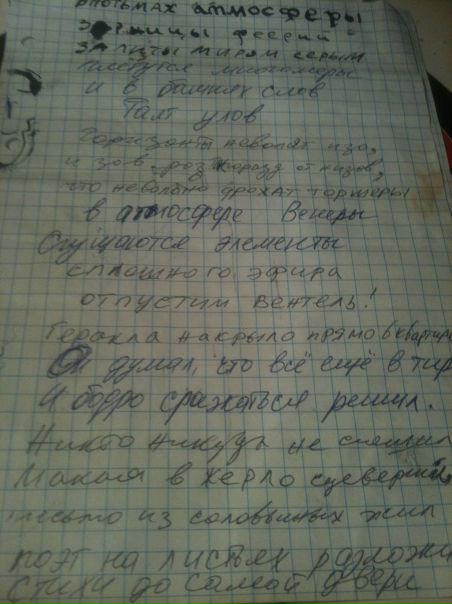 впотьмах атмосферы
зарницы феерий
залиты миром серым
плетутся многомеры
и в башнях слов
Таят улов
Горизонты неволят изо,
и зов роз
что невольно дрожат торшеры
в атмосфере Венеры
Сгущаются элементы
сплошного эфира
отпустим вентель!
Геракла накрыло прямо в квартире
Он думал, что всё ещё в тир
И бодро сражаться решил.
Никто никуда не спешил
Макая в жерло
письмо из соловьиных жил
поэт на листьях разложи
стихи до самой двери